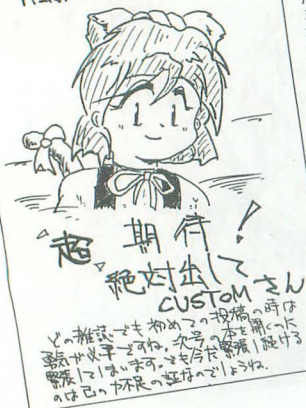 超 期待!
絶対出して
CUSTOMさん
どの雑誌でも初めての投稿の時は
勇気が必要ですね。次号の本を開くった
緊張してしまいます。でも今だ緊張し続ける
のは己の力不足の証なのでしょうね。